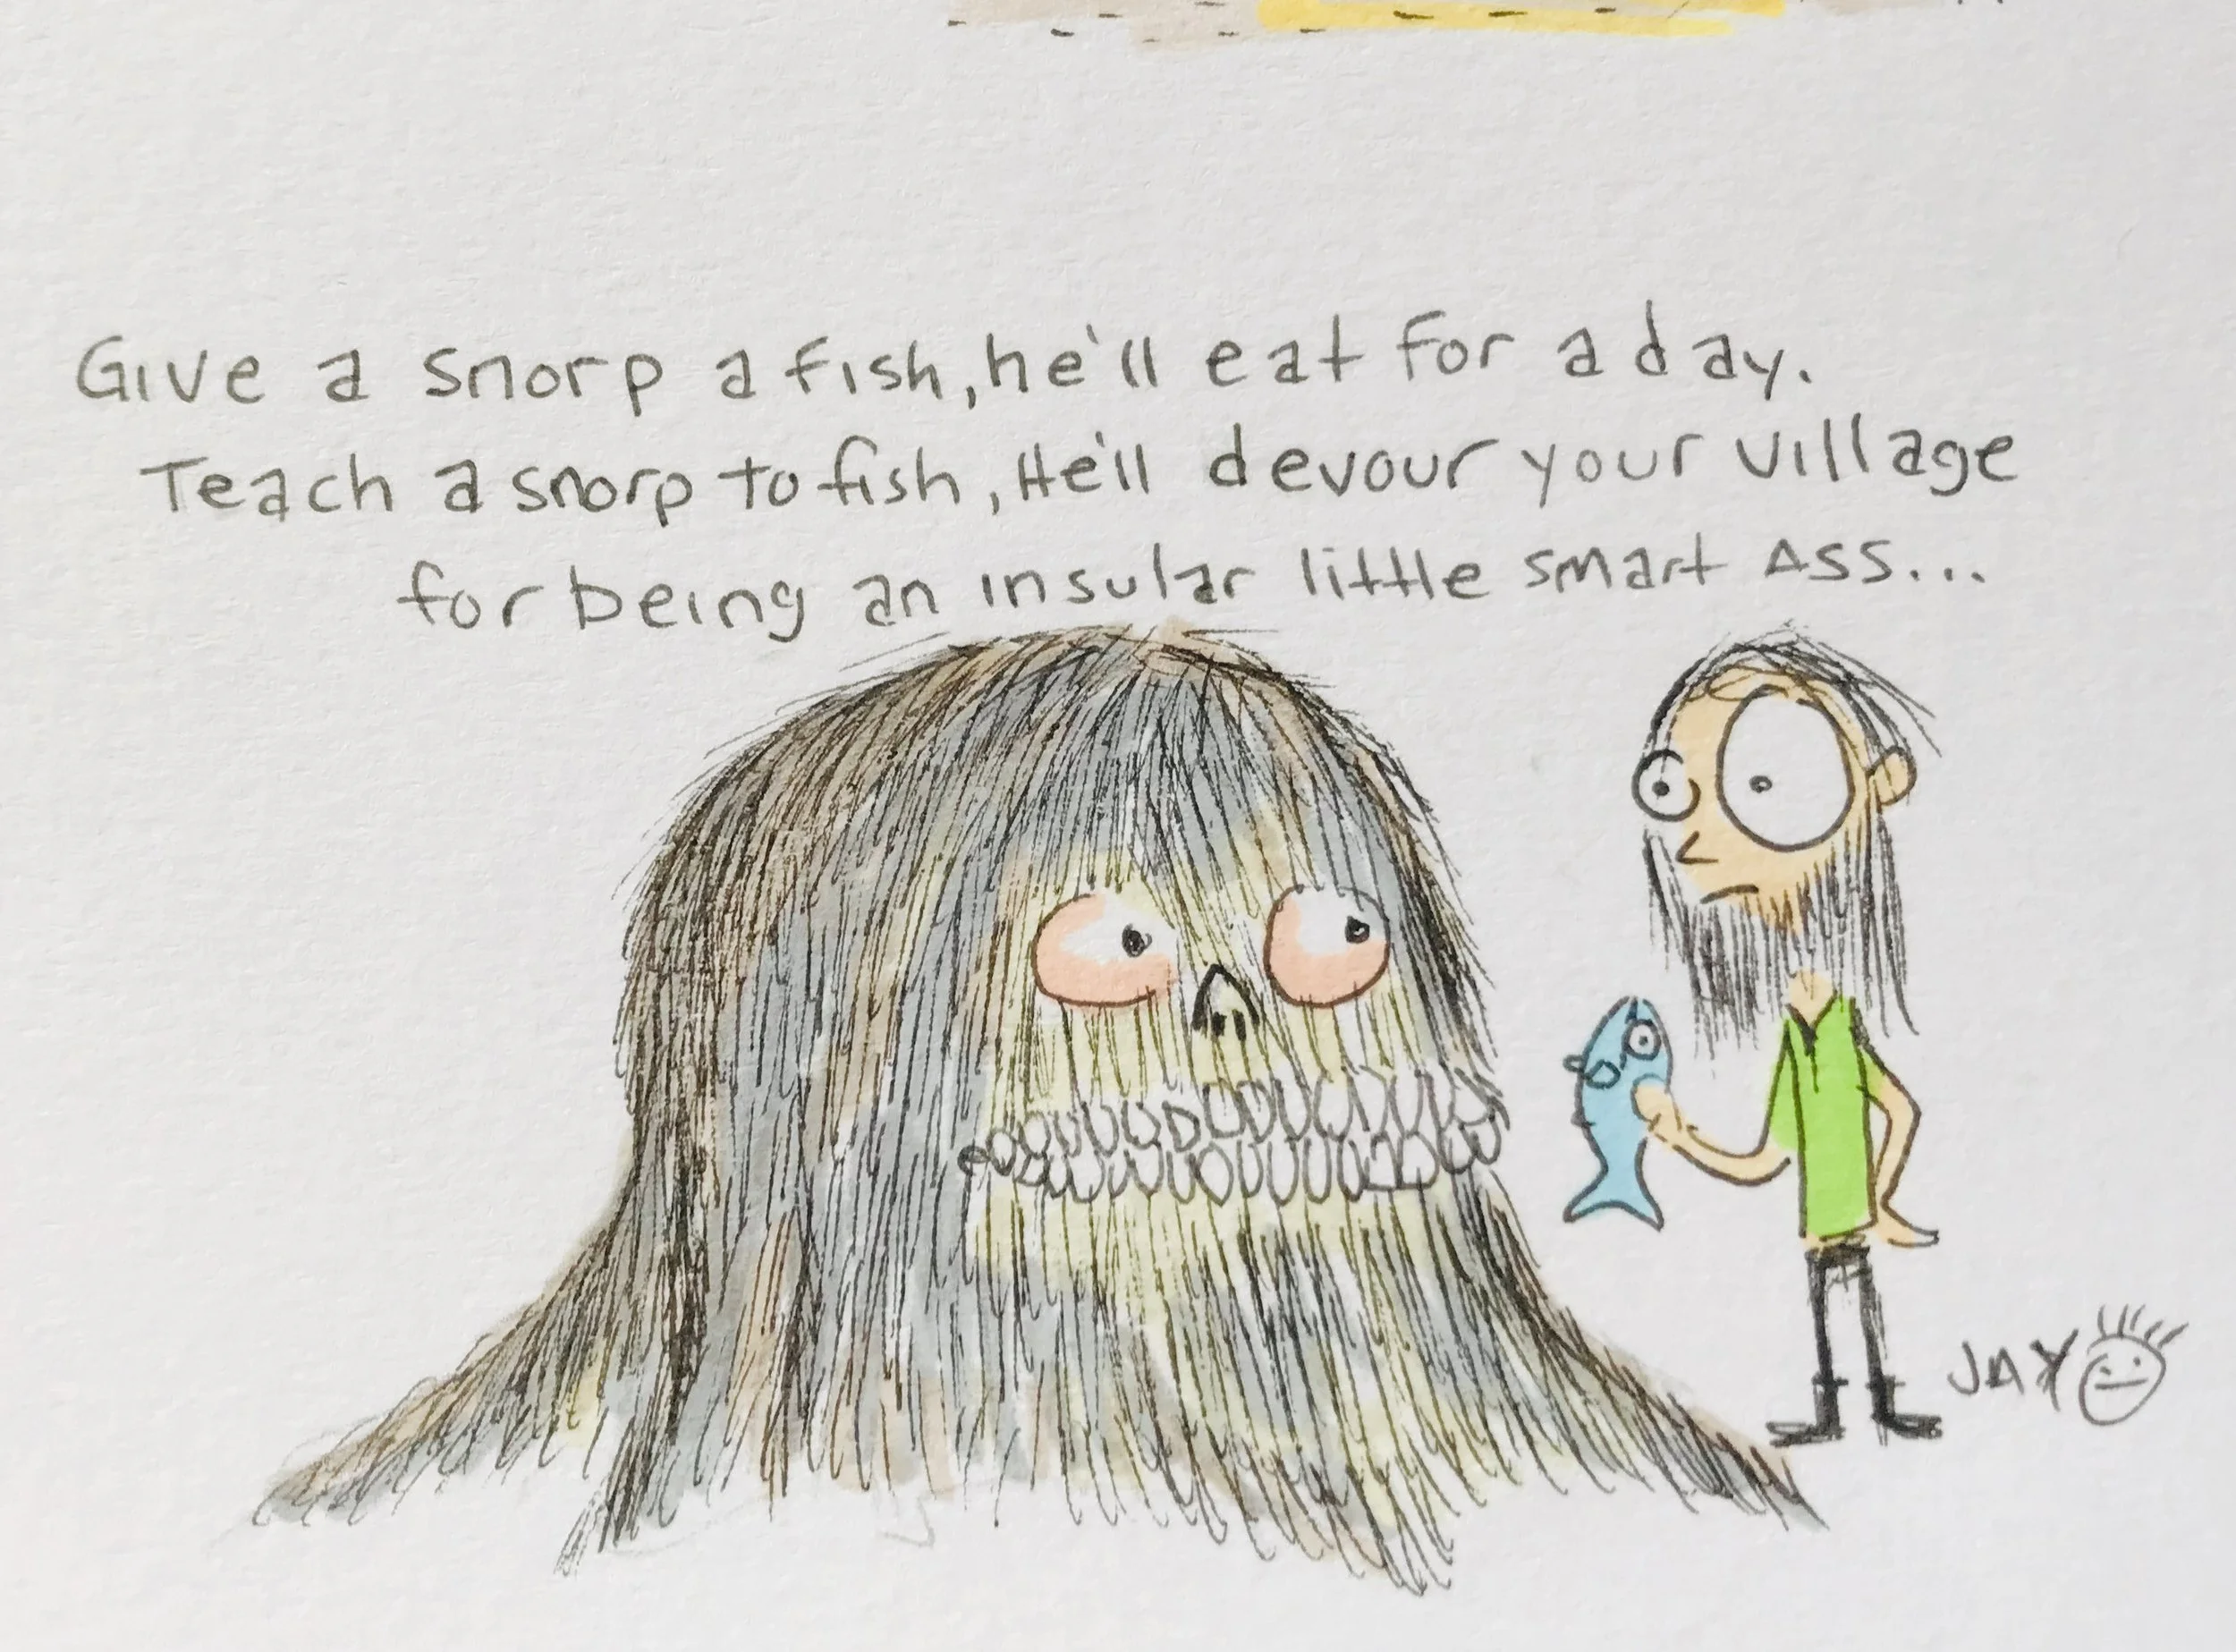 Give a snorp a fish, he'll eat for a day.
Teach a snorp to fish, He'll devour your village
for being an insular little smart Ass...
JAY